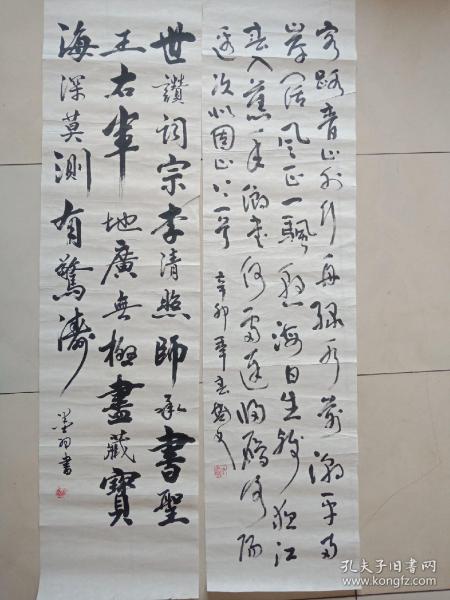 客路青山外行舟綠水前潮平兩
岸闊風正一颿懸海日生殘夜江
春入舊年鄉書何處達歸雁洛陽
邊次北固山下一首
辛卯年春
世讚詞宗李清照師承書聖
王右軍地廣無極盡藏寶
海深莫測有驚濤
墨羽書
孔夫子旧书网
www.kongfz.com